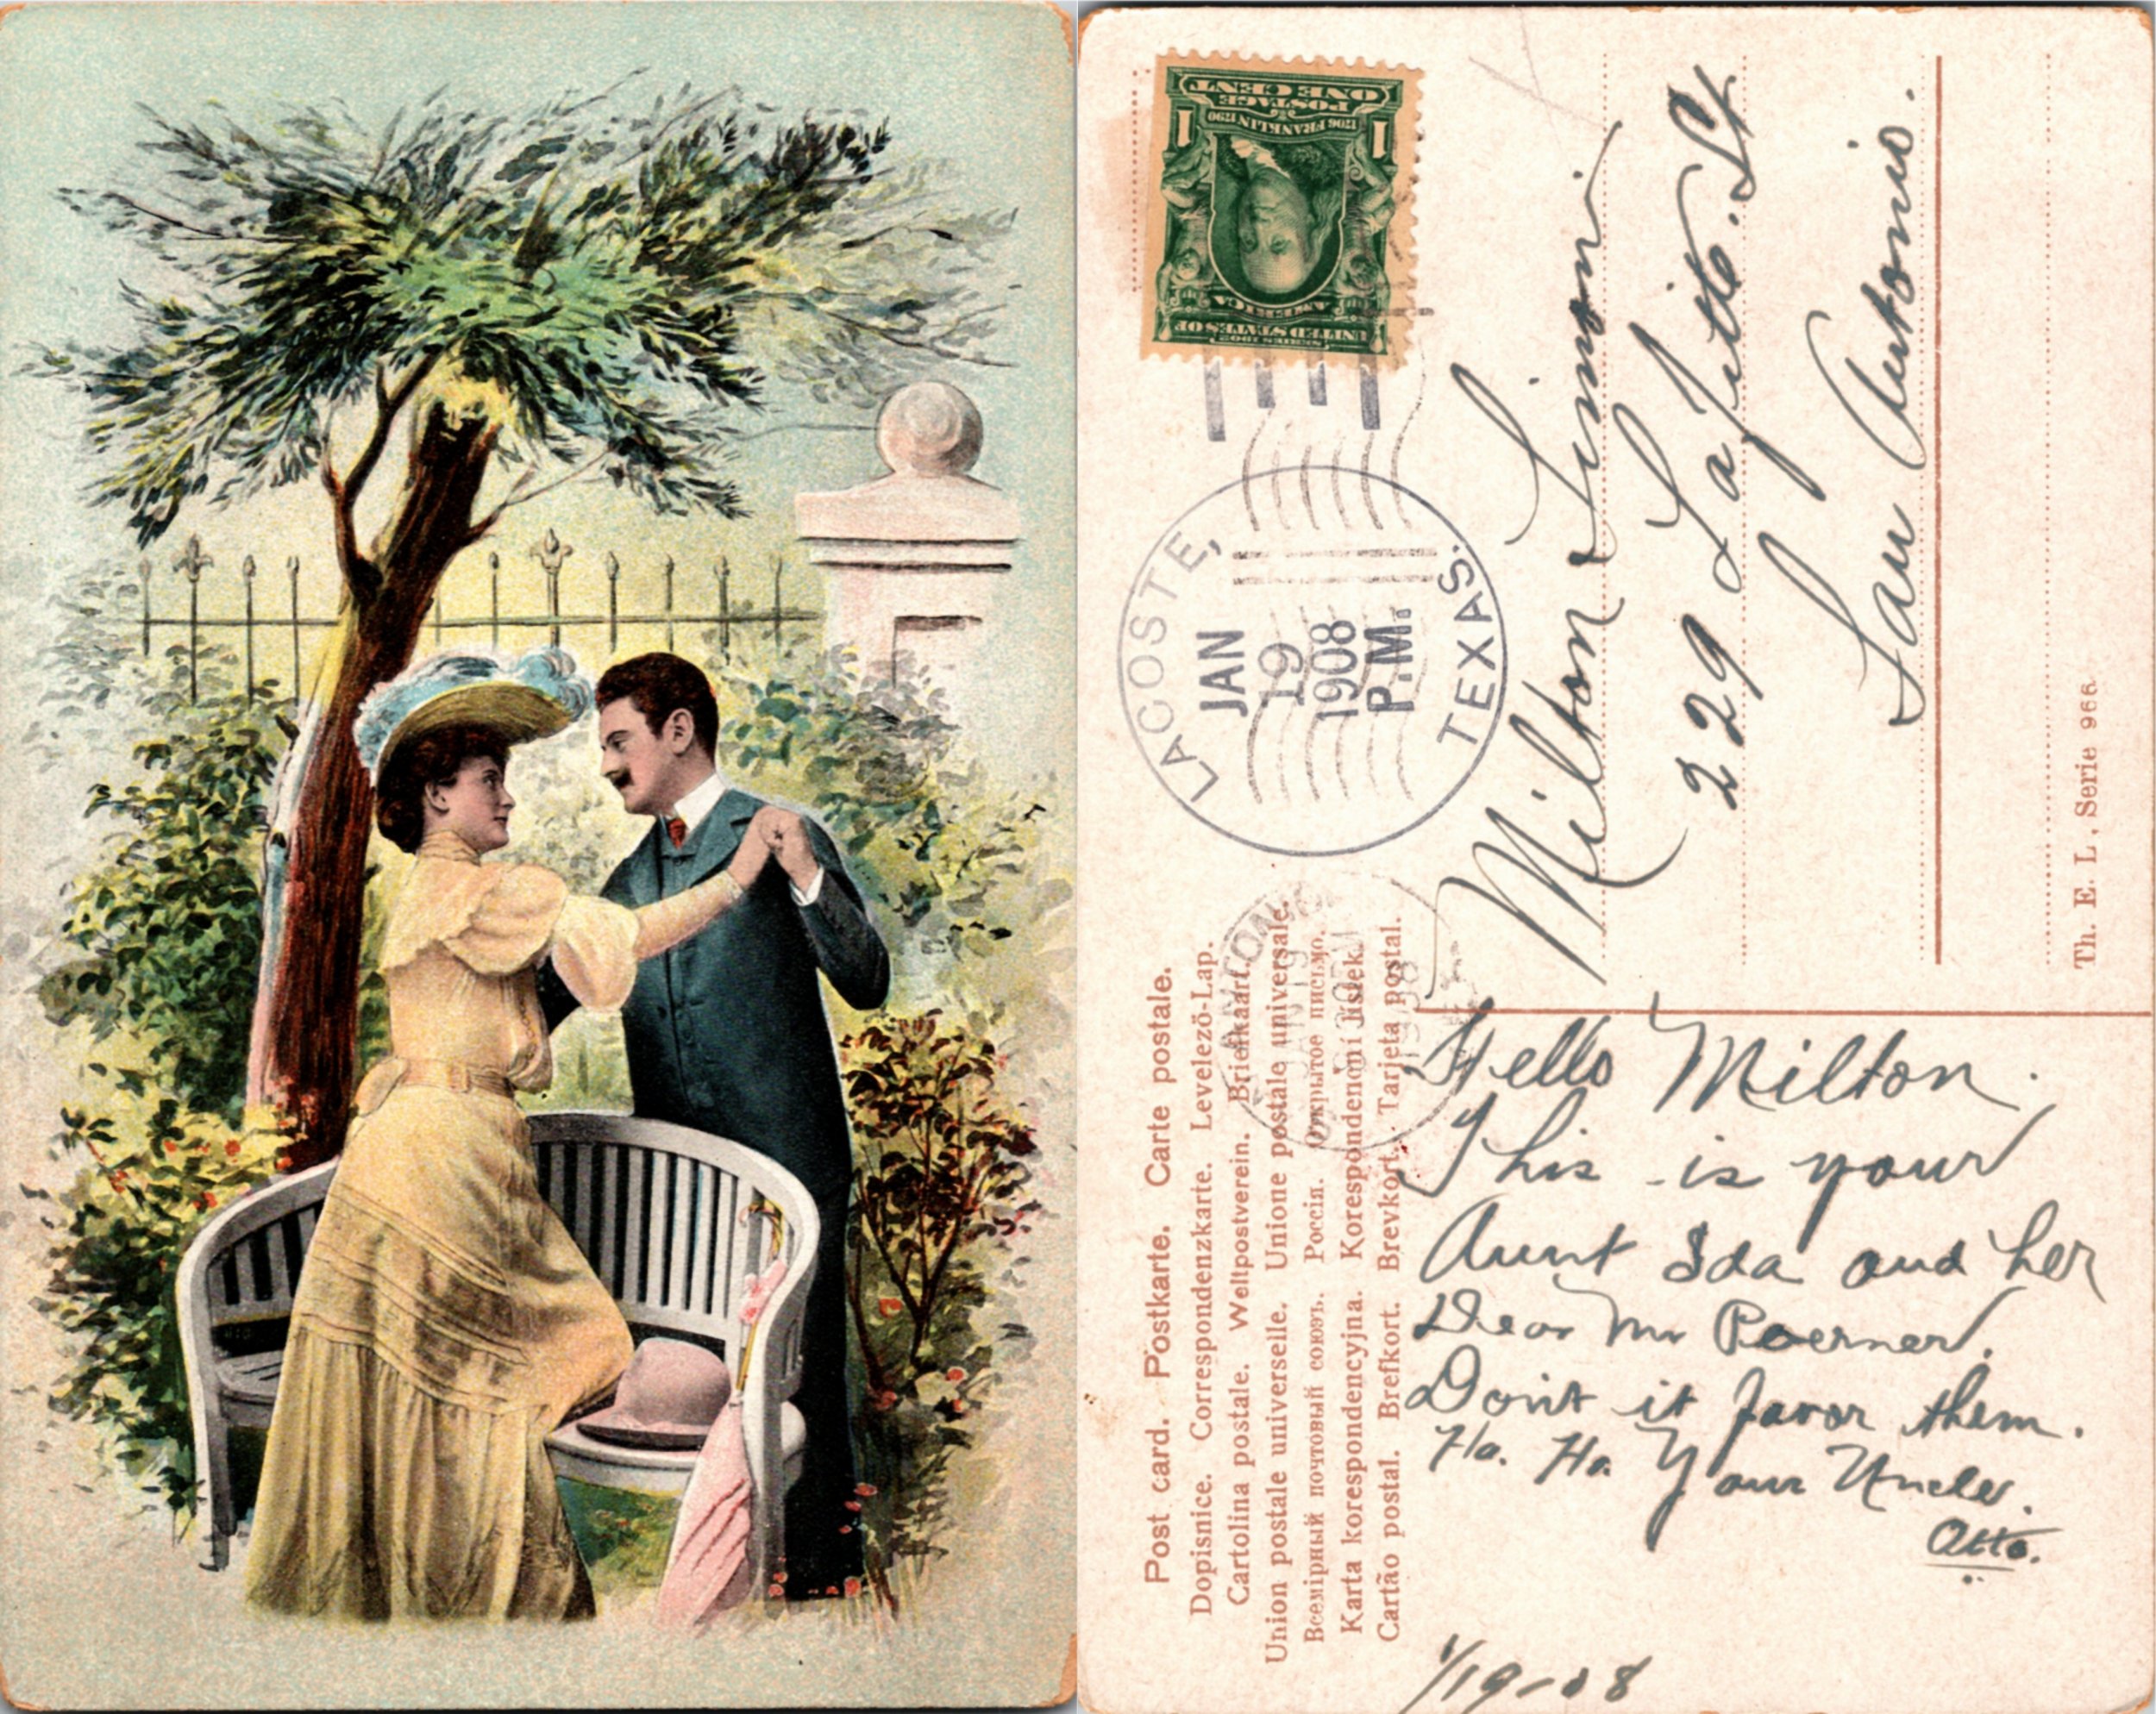 ONE CENT
POSTAGE
1706 FRANKLIN 1790
1 1
AMERICA
UNITED STATES OF
SERIES 1902
LACOSTE, TEXAS.
JAN
19
1908
P.M.
Milton Simon
229 Lafitte. St
San Antonio.
Th. E. L. Serie 966.
Post card. Postkarte. Carte postale.
Dopisnice. Correspondenzkarte. Levelező-Lap.
Cartolina postale. Weltpostverein. Briefkaart.
Union postale universelle. Unione postale universale.
Всемірный почтовый союзъ. Россія. Открытое письмо.
Karta korespondencyjna. Korespondenční lístek.
Cartão postal. Brefkort. Brevkort. Tarjeta postal.
Hello Milton.
This is your
Aunt Ida and her
Dear Mr Poerner.
Don't it favor them.
Ha. Ha. Your Uncle.
Otto.
1/19-08